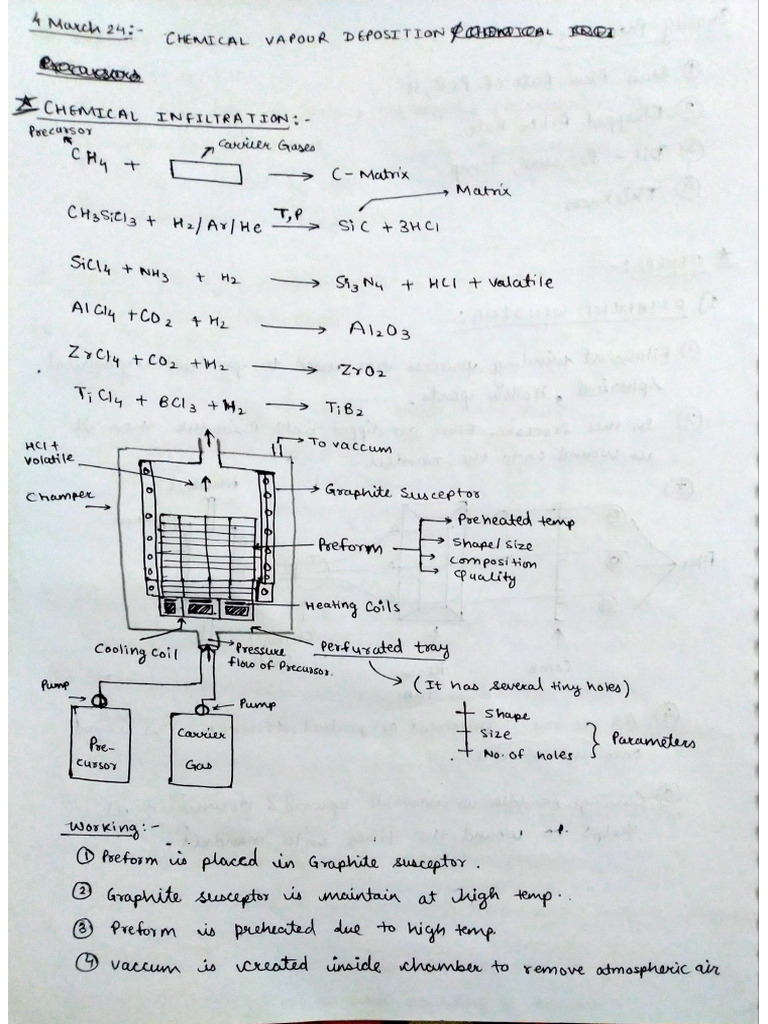 4 March 24:- CHEMICAL VAPOUR DEPOSITION
★ CHEMICAL INFILTRATION:-
Precursor
Carrier Gases
CH4 + → C-Matrix
Matrix
CH3SiCl3 + H2/Ar/He T,P → SiC + 3HCl
SiCl4 + NH3 + H2 → Si3N4 + HCl + Volatile
AlCl4 + CO2 + H2 → Al2O3
ZrCl4 + CO2 + H2 → ZrO2
TiCl4 + BCl3 + H2 → TiB2
HCl +
Volatile
To vaccum
Champer
Graphite Susceptor
Preform
Preheated temp
Shape/Size
Composition
Quality
Heating Coils
Cooling Coil
Pressure
flow of Precursor.
Perfurated tray
(It has several tiny holes)
Pump
Pump
Shape
Size
No. of holes
Parameters
Pre-
cursor
Carrier
Gas
Working:-
① Preform is placed in Graphite susceptor.
② Graphite susceptor is maintain at high temp.
③ Preform is preheated due to high temp.
④ Vaccum is created inside chamber to remove atmospheric air